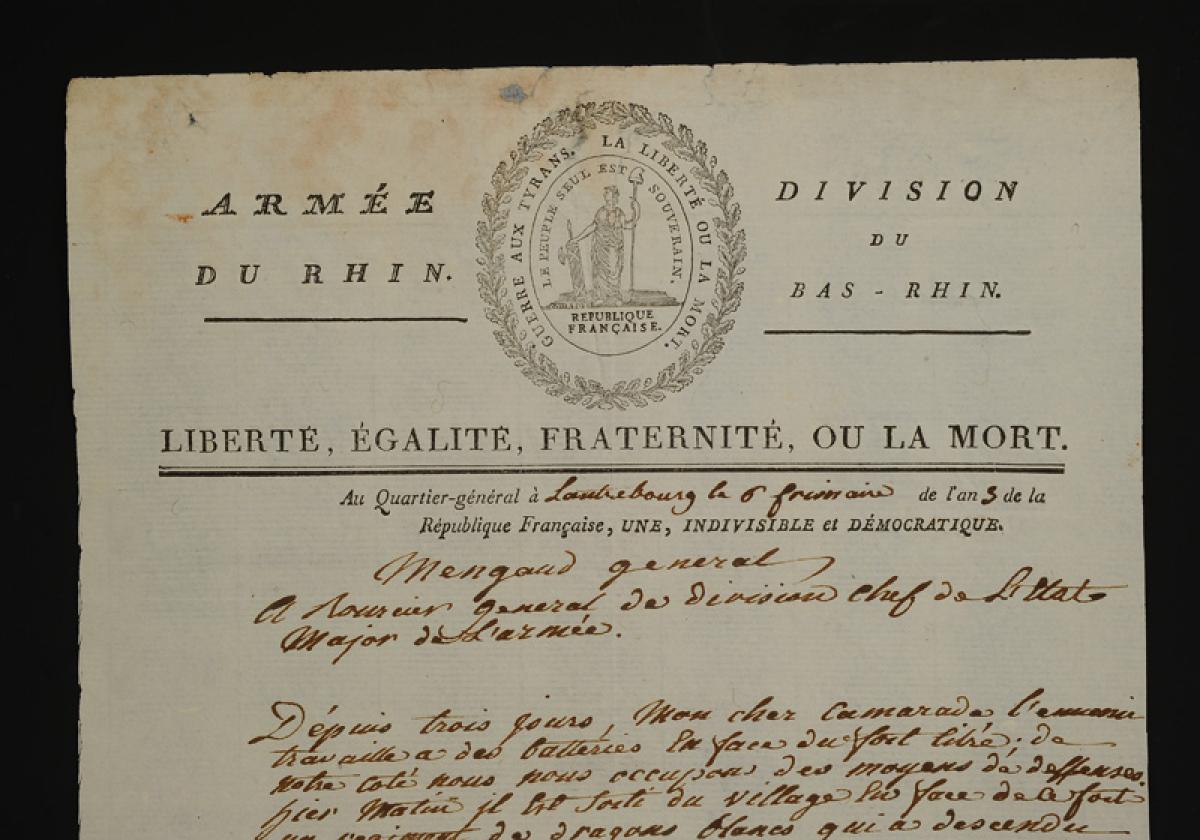 ARMÉE
DU RHIN.
GUERRE AUX TYRANS. LA LIBERTÉ OU LA MORT.
LE PEUPLE SEUL EST SOUVERAIN.
REPUBLIQUE
FRANÇAISE.
DIVISION
DU
BAS-RHIN.
LIBERTÉ, ÉGALITÉ, FRATERNITÉ, OU LA MORT.
Au Quartier-général à Lautrebourg le 6 frimaire de l'an 3 de la
République Française, UNE, INDIVISIBLE et DÉMOCRATIQUE.
Mengaud general
A Bourcier general de division chef de L'Etat
Major de L'armée.
Dépuis trois jours, Mon cher Camarade l'ennemi
travaille a des batteries En face du fort libré; de
notre coté nous nous occupon des moyens de deffenses.
hier Matin il Est Sorti du village En face de le fort
un regiment de dragons blancs qui a descendu